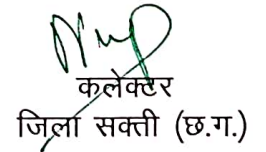 कलेक्टर
जिला सक्ती (छ.ग.)